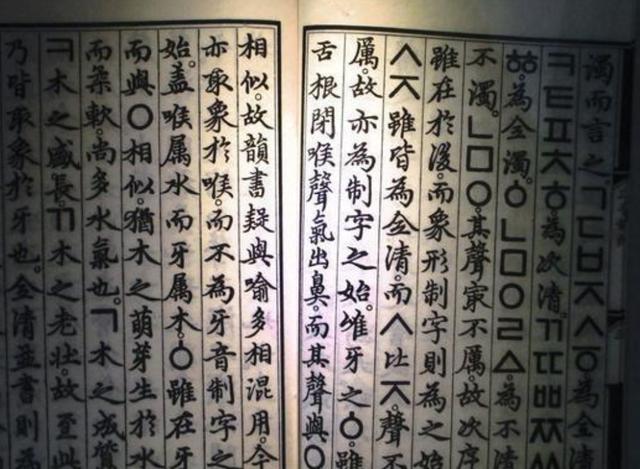 濁而言之。ㄱㄷㅂㅈㅅㆆ。為全清
ㅋㅌㅍㅊㅎ。為次清。ㄲㄸㅃㅉㅆ
ㆅ。為全濁。ㆁㄴㅁㅇㄹㅿ。為不清
不濁。ㄴㅁㅇ。其聲㝡不厲。故次序
雖在於後。而象形制字則為之始
ㅅㅈ雖皆為全清。而ㅅ比ㅈ。聲不
厲。故亦為制字之始。唯牙之ㆁ。雖
舌根閉喉聲氣出鼻。而其聲與ㅇ
相似。故韻書疑與喻多相混用。今
亦取象於喉。而不為牙音制字之
始。盖喉属水而牙属木。ㆁ雖在牙
而與ㅇ相似。猶木之萌芽生於水
而柔軟。尚多水氣也。ㄱ木之成質
ㅋ木之盛長。ㄲ木之老壯。故至此
乃皆取象於牙也。全清並書則為